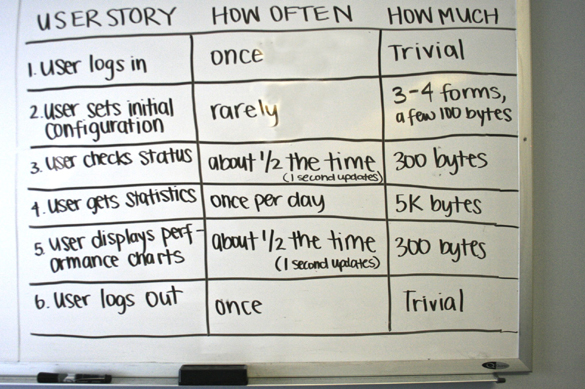 USER STORY HOW OFTEN HOW MUCH
1. User logs in once Trivial
2. user sets initial configuration rarely 3-4 forms, a few 100 bytes
3. user checks status about 1/2 the time (1 second updates) 300 bytes
4. user gets statistics once per day 5K bytes
5. user displays perf-ormance charts about 1/2 the time (1 second updates) 300 bytes
6. user logs out once Trivial